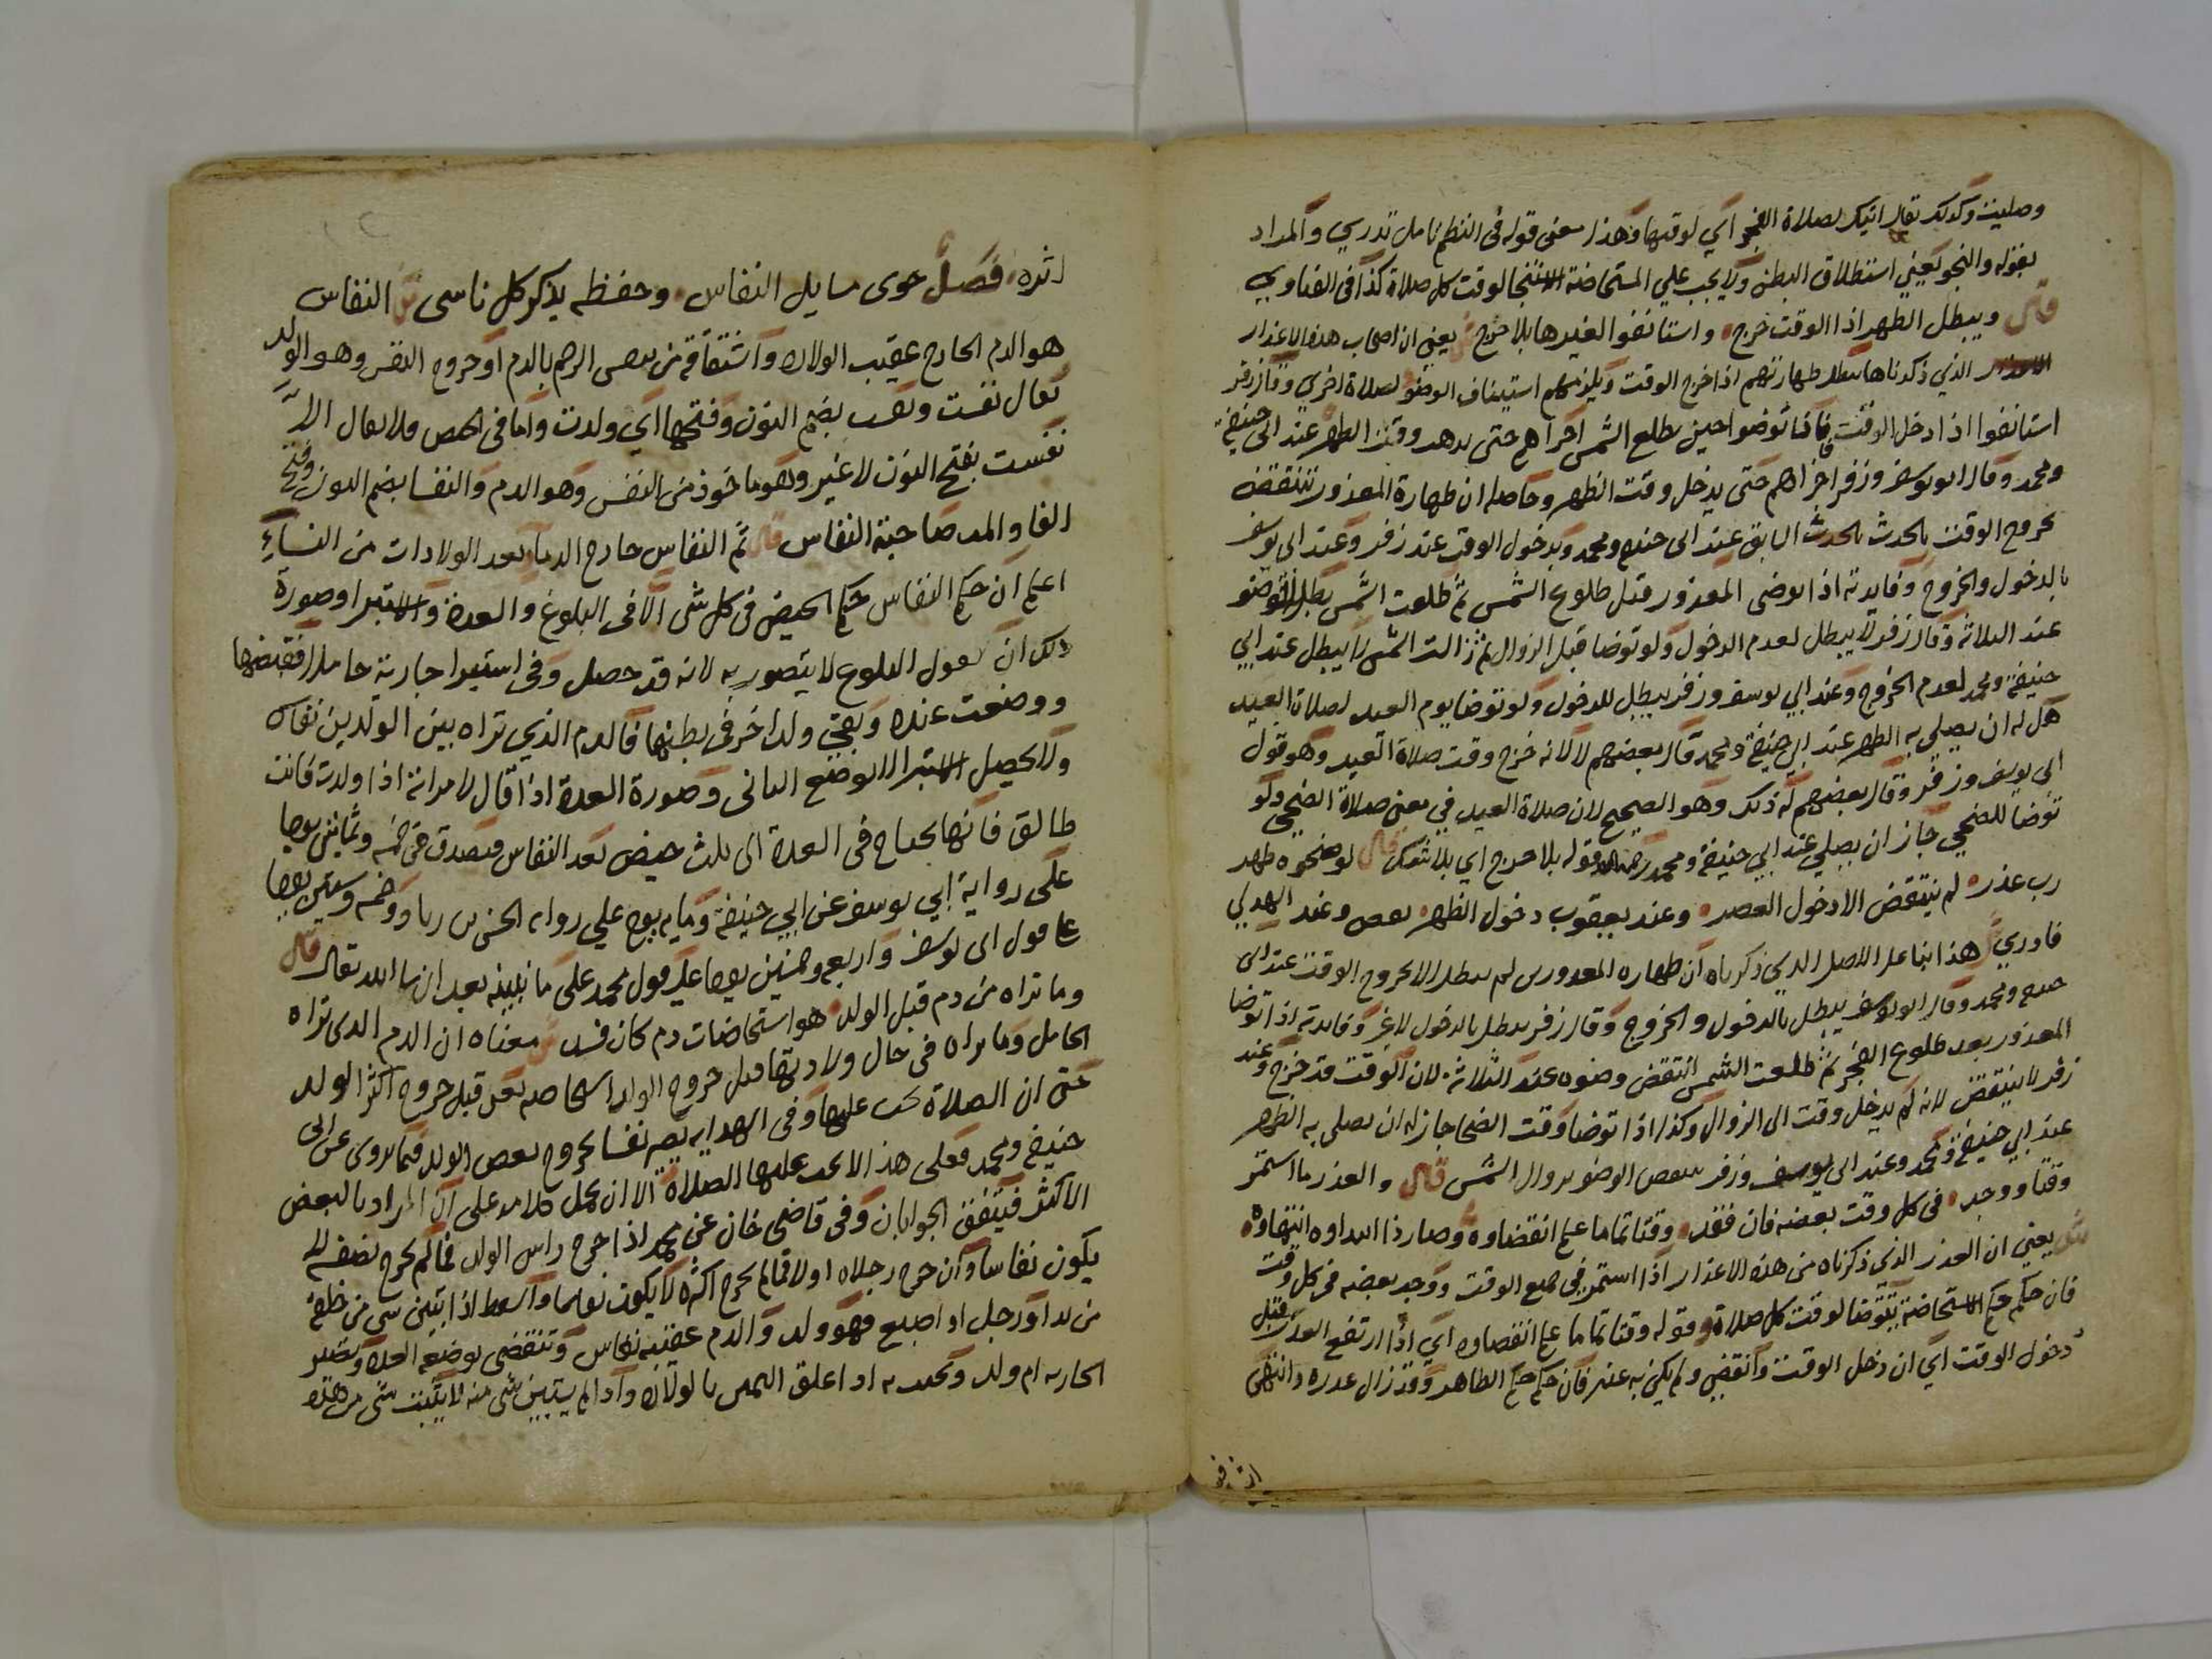 وصليت وكذلك يقال اتيك لصلاة الفجر اي لوقتها وهذا معنى قوله في النظم تامل تدري والمراد
بقوله والنجو يعني استطلاق البطن ولا يجب علي المستحاضة الاستنجا لوقت كل صلاة كذا في الفتاوي
قال ويبطل الطهر اذا الوقت خرج واستانفوا لغيرها بلا حرج ش يعني ان اصحاب هذه الاعذار
الذي ذكرناها تبطل طهارتهم اذا خرج الوقت ويلزمهم استيناف الوضو لصلاة اخري وقال زفر
استانفوا اذا دخل الوقت فاذا توضوا حين تطلع الشمس اجزاهم حتى يذهب وقت الظهر عند ابي حنيفة
ومحمد وقال ابو يوسف وزفر اجزاهم حتى يدخل وقت الظهر وحاصله ان طهارة المعذور تنتقض
بخروج الوقت بالحدث السابق عند ابي حنيفة ومحمد وبدخول الوقت عند زفر وعند ابي يوسف
بالدخول والخروج وفايدته اذا توضى المعذور قبل طلوع الشمس ثم طلعت الشمس يبطل الوضو
عند الثلاثة وقال زفر لا يبطل لعدم الدخول ولو توضا قبل الزوال ثم زالت الشمس لا يبطل عند ابي
حنيفة ومحمد لعدم الخروج وعند ابي يوسف وزفر يبطل للدخول ولو توضا يوم العيد لصلاة العيد
هل له ان يصلي به الظهر عند ابي حنيفة ومحمد قال بعضهم لا لانه خرج وقت صلاة العيد وهو قول
ابي يوسف وزفر وقال بعضهم له ذلك وهو الصحيح لان صلاة العيد في معنى صلاة الضحى ولو
توضا للضحي جاز ان يصلي عند ابي حنيفة ومحمد قوله بلا حرج اي بلا شك قال لو ضحوه طهر
رب عذر لم ينتقض الا دخول العصر وعند يعقوب دخول الظهر وعند الهدي
فادري ش هذا بنا على الاصل الذي ذكرناه ان طهاره المعذورين لم تبطل الا بخروج الوقت عند ابي
حنيفة ومحمد وقال ابو يوسف يبطل بالدخول والخروج وقال زفر تبطل بالدخول لا غير وفايدته اذا توضا
المعذور بعد طلوع الفجر ثم طلعت الشمس انتقض وضوه عند الثلاثة لان الوقت قد خرج وعند
زفر لا ينتقض لانه لم يدخل وقت الى الزوال وكذا اذا توضا وقت الضحا جاز له ان يصلى به الظهر
عند ابي حنيفة ومحمد وعند ابي يوسف وزفر ينتقض الوضو بزوال الشمس قال والعذر ما استمر
وقتا ووجد في كل وقت بعضه فان فقد وقتا تماما علم انقضاوه وصار ذا ابتداوه انتهاوه
ش يعني ان العذر الذي ذكرناه من هذه الاعذار اذا استمر في جميع الوقت ووجد بعضه في كل وقت
فان حكمه حكم الاستحاضة يتوضا لوقت كل صلاة وقوله وقتا تماما علم انقضاوه اي اذا ارتفع العذر قبل
دخول الوقت اي ان دخل الوقت وانقضى ولم يكن به عذر فان حكمه حكم الطاهر وقد زال عذره وانقضى
اثره فصل حوى مسايل النفاس وحفظه يذكر كل ناسى ش النفاس
هو الدم الخارج عقيب الولادة واشتقاقه من تنفس الرحم بالدم او خروج النفس وهو الولد
يقال نفست ونفست بضم النون وفتحها اي ولدت واما في الحيض فلا يقال الا
نفست بفتح النون لا غير وهو ماخوذ من النفس وهو الدم والنفسا بضم النون وفتح
الفا والمد صاحبة النفاس قال ثم النفاس خارج الدما بعد الولادات من النساء
اعلم ان حكم النفاس حكم الحيض فى كل شى الا فى البلوغ والعدة والاستبرا وصورة
ذلك ان تقول البلوغ لا يتصور به لانه قد حصل وفى استبرا جارية حاملا فقبضها
ووضعت عنده وبقي ولدا اخر في بطنها فالدم الذي تراه بين الولدين نفاس
ولا يحصل الاستبرا الا بوضع الثانى وصورة العدة اذا قال لامراته اذا ولدت فانت
طالق فانها تحتاج فى العدة الى ثلث حيض بعد النفاس فتصدق فى خمسة وثمانين يوما
على رواية ابي يوسف عن ابي حنيفة وماية يوم علي رواية الحسن بن زياد وخمسة وستين يوما
على قول ابى يوسف واربعة وخمسين يوما على قول محمد على ما نبينه بعد ان شا الله تعالى قال
وما تراه من دم قبل الولد هو استحاضات دم كان فسد ش معناه ان الدم الذى تراه
الحامل وما تراه فى حال ولادتها قبل خروج الولد استحاضه يعنى قبل خروج اكثر الولد
حتى ان الصلاة تجب عليها وفى الهدايه تصير نفسا بخروج بعض الولد فيما يروى عن ابى
حنيفة ومحمد فعلى هذا لا تجب عليها الصلاة الا ان يحمل كلامه على ان المراد بالبعض
الاكثر فيتفق الجوابان وفى قاضى خان عن محمد اذا خرج راس الولد فما لم يخرج نصفه لا
يكون نفاسا وان خرج رجلاه اولا فما لم يخرج اكثره لا يكون نفاسا والسقط اذا تبين شى من خلقه
من يد او رجل او اصبع فهو ولد والدم عقيبه نفاس وتنقضى بوضعه العدة وتصير
الجاريه ام ولد ويحنث به اذا علق اليمين بالولادة واذا لم يستبين شى منه لا يثبت شى من هذه